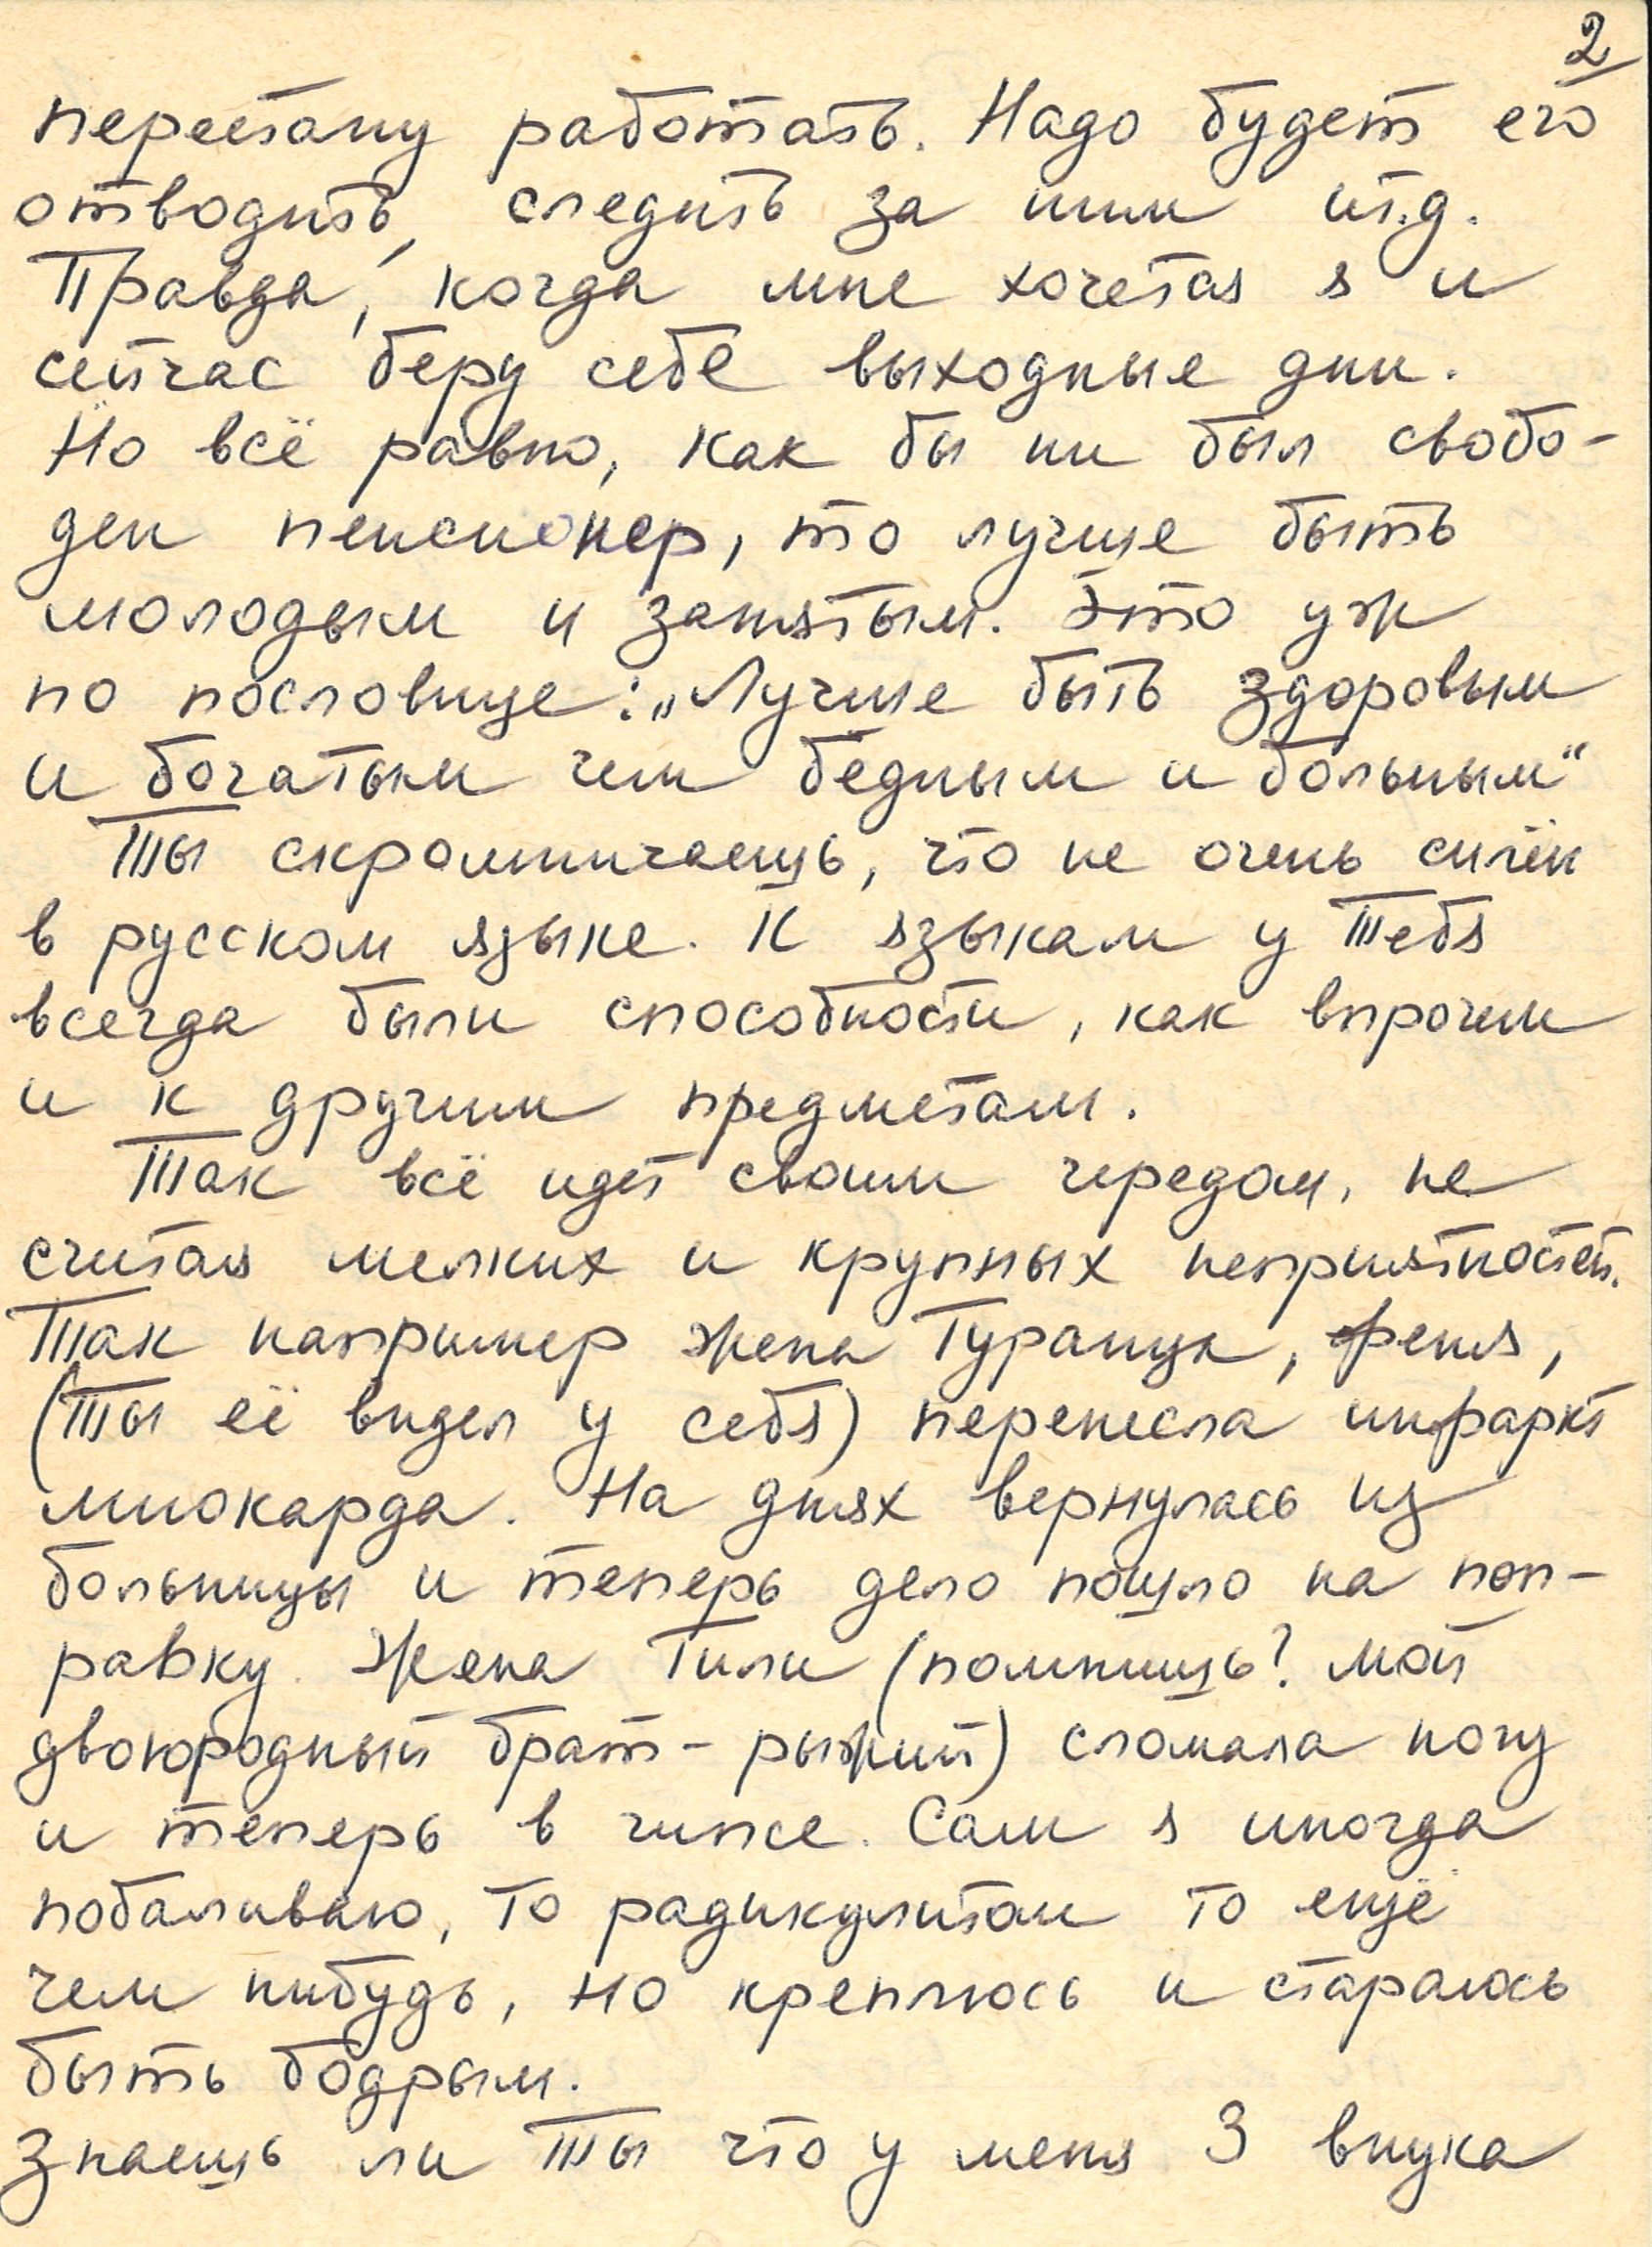 2
перестану работать. Надо будет его
отводить, следить за ним ит.д.
Правда, когда мне хочется я и
сейчас беру себе выходные дни.
Но всё равно, как бы ни был свобо-
ден пенсионер, то лучше быть
молодым и занятым. Это уж
по пословице: „Лучше быть здоровым
и богатым чем бедным и больным“
Ты скромничаешь, что не очень силён
в русском языке. К языкам у Тебя
всегда были способности, как впрочем
и к другим предметам.
Так всё идет своим чередом, не
считая мелких и крупных неприятностей.
Так например жена Гурамука, Феня,
(Ты её видел у себя) перенесла инфаркт
миокарда. На днях вернулась из
больницы и теперь дело пошло на поп-
равку. Жена Гили (помнишь? мой
двоюродный брат - рыжий) сломала ногу
и теперь в гипсе. Сам я иногда
побаливаю, то радикулитом то ещё
чем нибудь, но креплюсь и стараюсь
быть бодрым.
Знаешь ли Ты что у меня 3 внука